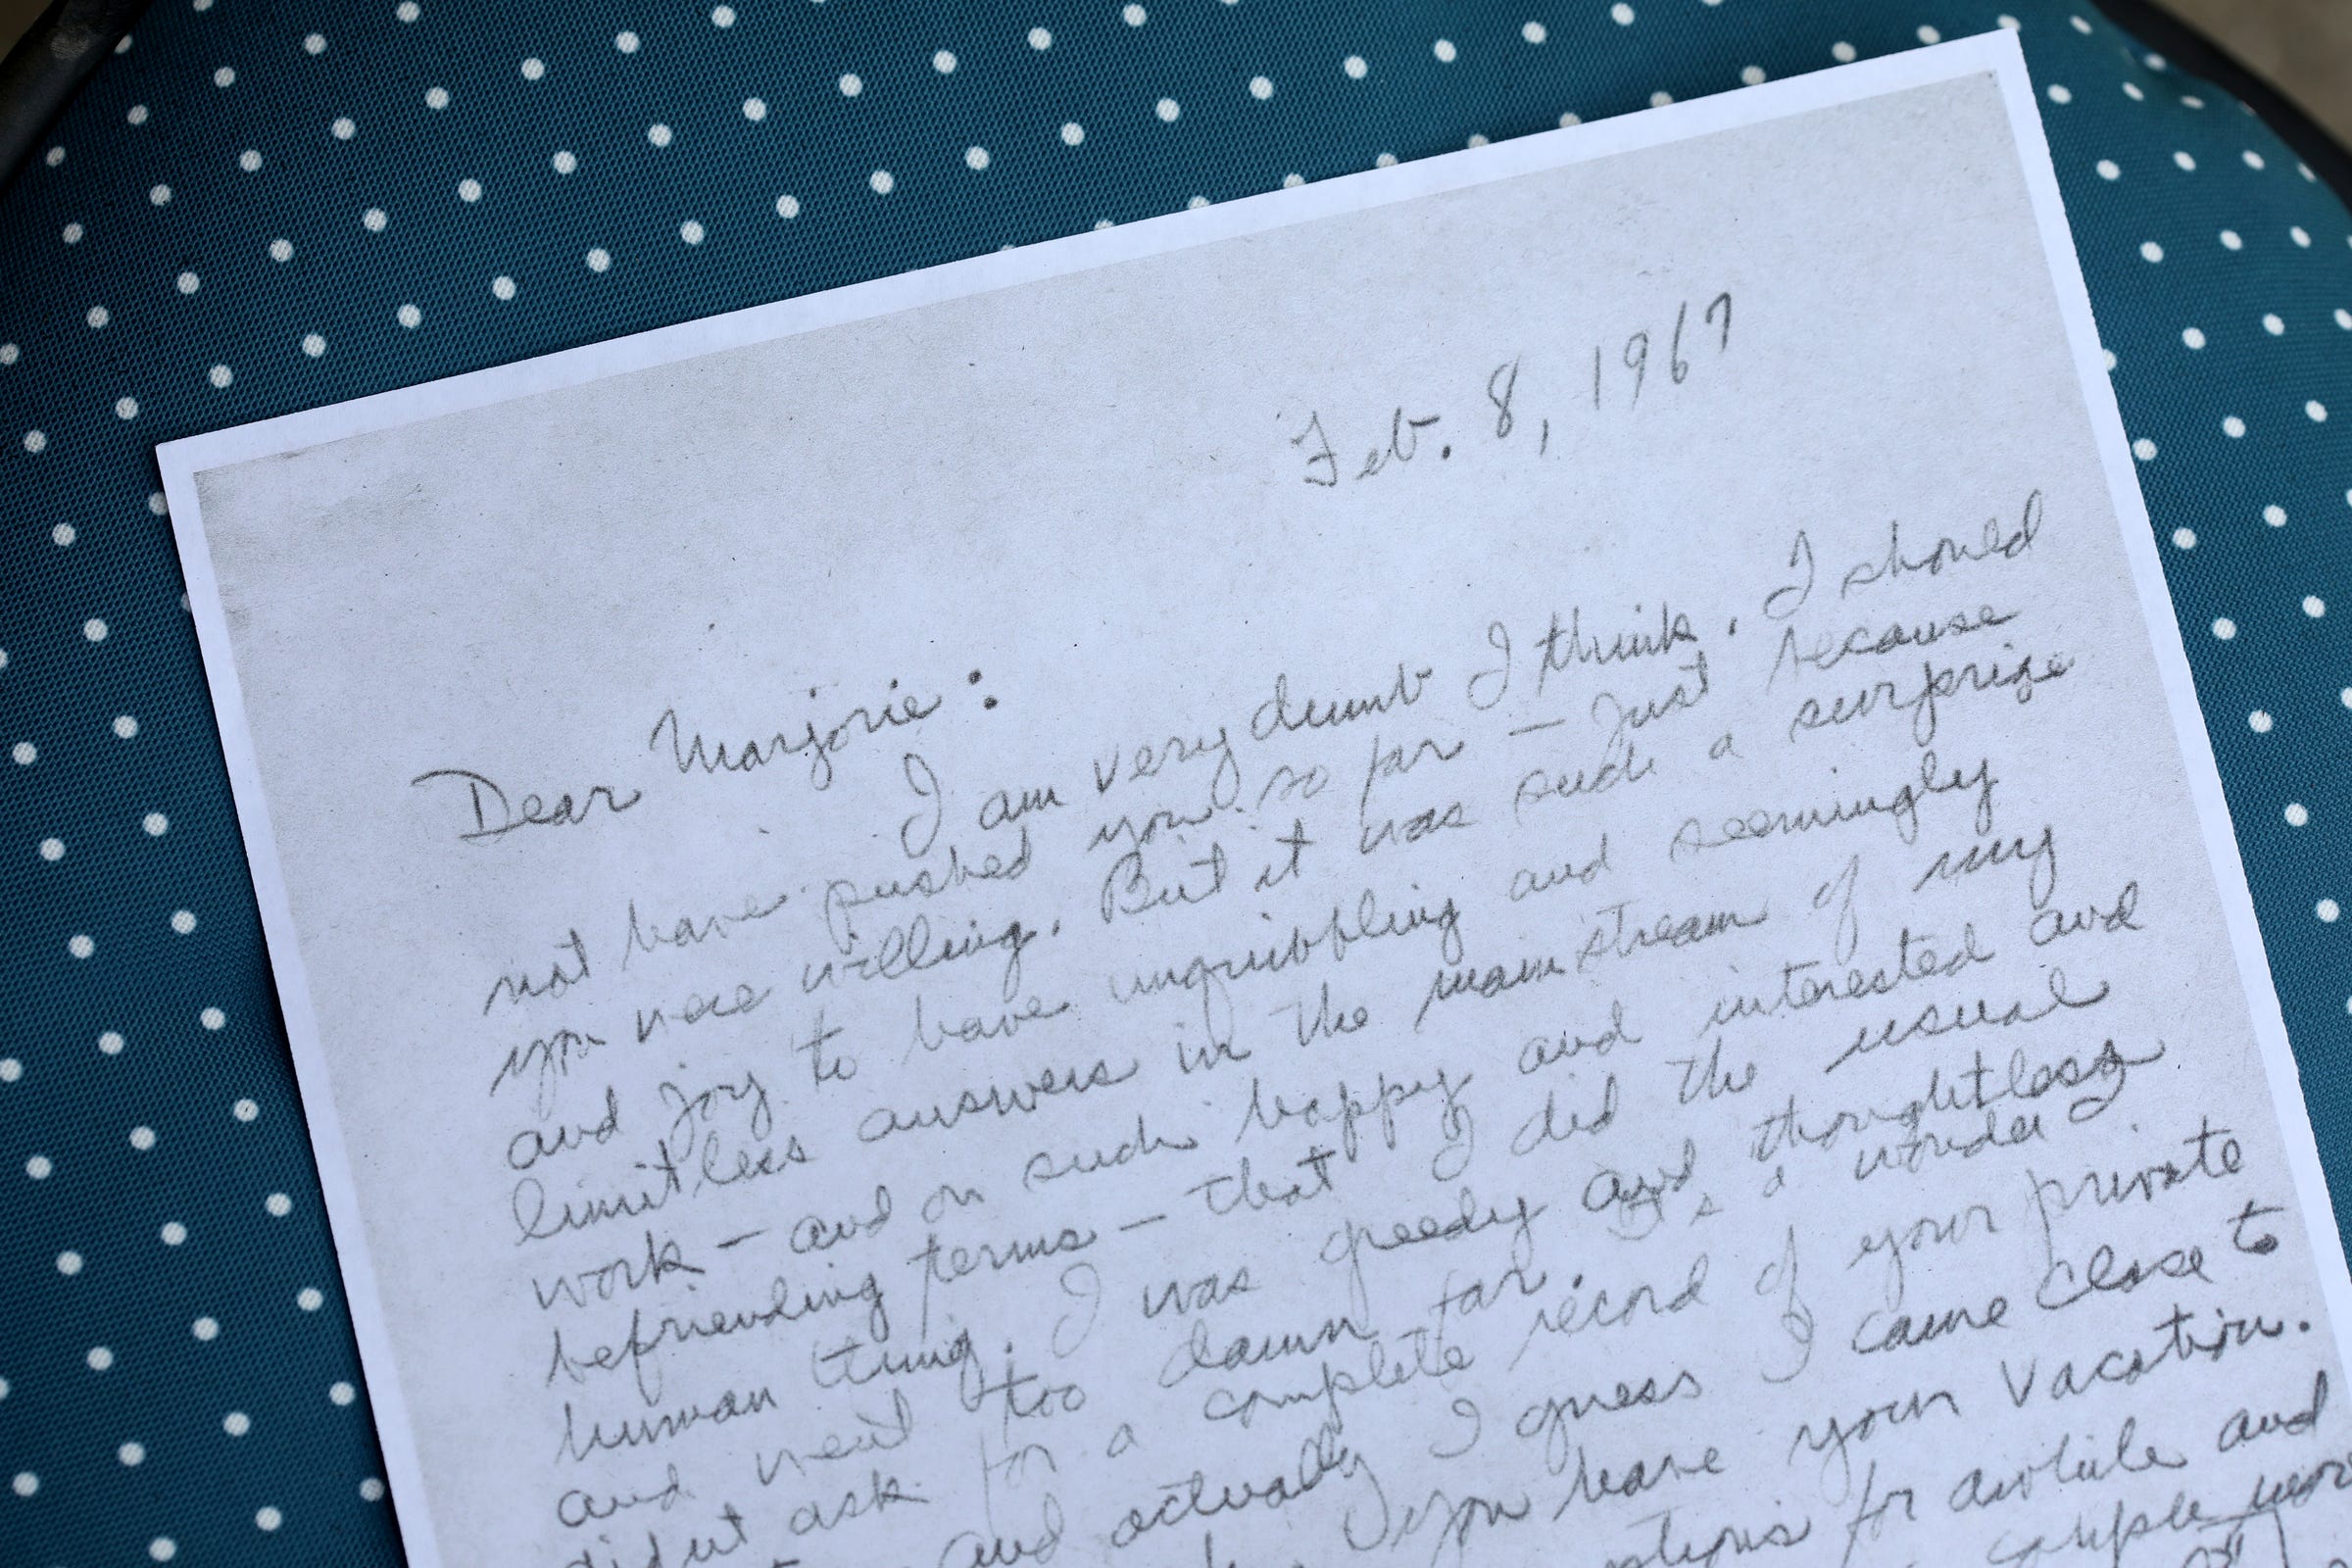 Feb. 8, 1967
Dear Marjorie:
I am very dumb I think. I should
not have pushed you so far — just because
you were willing. But it was such a surprize
and joy to have unquibbling and seemingly
limitless answers in the mainstream of my
work — and on such happy and interested and
befriending terms — that I did the usual
human thing. I was greedy and thoughtless
and went too damn far. It's a wonder I
didnt ask for a complete record of your private
and actually I guess I came close to
you have your vacation.
for awhile and
couple more